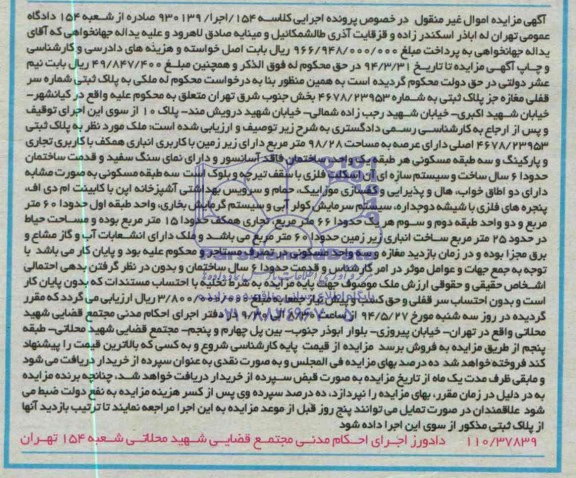 آگهی مزایده اموال غیر منقول در خصوص پرونده اجرایی کلاسه ۱۵۴/اجرا/ ۹۳۰۱۳۹ صادره از شعبه ۱۵۴ دادگاه
عمومی تهران له اباذر اسکندر زاده و قزقایت آذری طالشمکائیل و مینایه صادق لاهرود و علیه یداله جهانخواهی که آقای
یداله جهانخواهی به پرداخت مبلغ ۹۶۶/۹۴۸/۰۰۰/۰۰۰ ریال بابت اصل خواسته و هزینه های دادرسی و کارشناسی
و چاپ آگهی مزایده تا تاریخ ۹۴/۳/۳۱ در حق محکوم له فوق الذکر و همچنین مبلغ ۴۹/۸۴۷/۴۰۰ ریال بابت نیم
عشر دولتی در حق دولت محکوم گردیده است به همین منظور بنا به درخواست محکوم له ملکی به پلاک ثبتی شماره سر
قفلی مغازه جز پلاک ثبتی به شماره ۴۶۷۸/۲۳۹۵۳ بخش جنوب شرق تهران متعلق به محکوم علیه واقع در کیانشهر-
خیابان شهید اکبری- خیابان شهید رجب زاده شمالی- خیابان شهید درویش مند- پلاک ۱۰ از سوی این اجرای توقیف
و پس از ارجاع به کارشناسی رسمی دادگستری به شرح زیر توصیف و ارزیابی شده است: ملک مورد نظر به پلاک ثبتی
۴۶۷۸/۲۳۹۵۳ اصلی دارای عرصه به مساحت ۹۸/۲۸ متر مربع دارای زیر زمین با کاربری انباری همکف با کاربری تجاری
و پارکینگ و سه طبقه مسکونی هر طبقه یک واحد ساختمان فاقد آسانسور و دارای نمای سنگ سفید و قدمت ساختمان
حدودا ۶ سال ساخت و سیستم سازه ای آن اسکلت فلزی با سقف تیرچه و بلوک است سه طبقه مسکونی به صورت مشابه
دارای دو اطاق خواب، هال و پذیرایی و کفسازی موزاییک، حمام و سرویس بهداشتی آشپزخانه اپن با کابینت ام دی اف،
پنجره های فلزی با شیشه دوجداره، سیستم سرمایش کولر آبی و سیستم گرمایش بخاری، واحد طبقه اول حدودا ۶۰ متر
مربع و دو واحد طبقه دوم و سوم هر یک حدودا ۶۶ متر مربع، تجاری همکف حدودا ۱۵ متر مربع بوده و مساحت حیاط
در حدود ۲۵ متر مربع ساخت انباری زیر زمین حدودا ۶۰ متر مربع می باشد و ملک دارای انشعابات آب و گاز مشاع و
برق مجزا بوده و در زمان بازدید مغازه و سه واحد مسکونی در تصرف مستاجر و محکوم علیه بود و پایان کار می باشد با
توجه به جمع جهات و عوامل موثر در امر کارشناس و قدمت حدودا ۶ سال ساختمان و بدون در نظر گرفتن بدهی احتمالی
اشخاص حقیقی و حقوقی ارزش ملک موصوف جهت پایه مزایده به شرط تخلیه با احتساب مستندات که بدون پایان کار
است و بدون احتساب سر قفلی و حق کسب و پیشه و نیاز جمعا به مبلغ ۳/۸۰۰/۰۰۰/۰۰۰ ریال ارزیابی می گردد که مقرر
گردیده در روز سه شنبه مورخ ۹۴/۵/۲۷ از ساعت ۸/۳۰ الی ۹/۳۰ دفتر اجرای احکام مدنی مجتمع قضایی شهید
محلاتی واقع در تهران- خیابان پیروزی- بلوار ابوذر جنوب- بین پل چهارم و پنجم- مجتمع قضایی شهید محلاتی- طبقه
پنجم از طریق مزایده به فروش برسد مزایده از قیمت پایه کارشناسی شروع و به کسی که بالاترین قیمت را پیشنهاد
کند فروخته خواهد شد ده درصد بهای مزایده فی المجلس و به صورت نقدی به عنوان سپرده از خریدار دریافت می شود
و مابقی ظرف مدت یک ماه از تاریخ مزایده به صورت قبض سپرده از خریدار دریافت خواهد شد، چنانچه برنده مزایده
به در دلیل در زمان مقرر، بهای مزایده را نپردازد، ده درصد سپرده وی پس از کسر هزینه مزایده به نفع دولت ضبط می
شود علاقمندان در صورت تمایل می توانند پنج روز قبل از موعد مزایده به این اجرا مراجعه نمایند تا ترتیب بازدید آنها
از پلاک ثبتی مذکور از سوی این اجرا داده شود
۱۱۰/۳۷۸۳۹ دادورز اجرای احکام مدنی مجتمع قضایی شهید محلاتی شعبه ۱۵۴ تهران